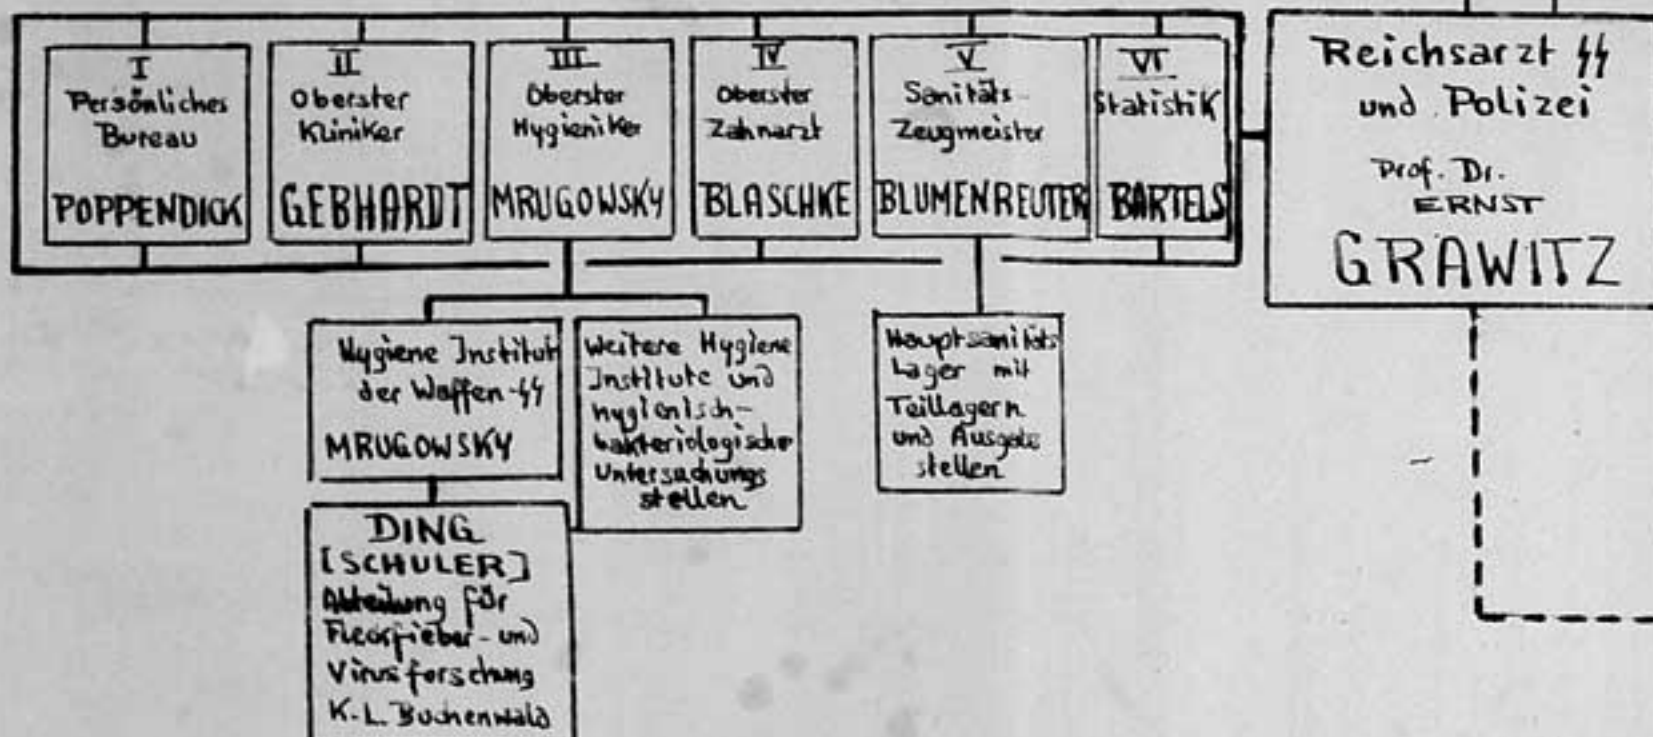 I
Persönliches
Bureau
POPPENDICK
II
Oberster
Kliniker
GEBHARDT
III
Oberster
Hygieniker
MRUGOWSKY
IV
Oberster
Zahnarzt
BLASCHKE
V
Sanitäts-
Zeugmeister
BLUMENREUTER
VI
Statistik
BARTELS
Reichsarzt SS
und Polizei
Prof. Dr.
ERNST
GRAWITZ
Hygiene Institut
der Waffen-SS
MRUGOWSKY
Weitere Hygiene
Institute und
hygienisch-
bakteriologische
Untersuchungs
stellen
Hauptsanitäts
Lager mit
Teillagern
und Ausgabe
stellen
DING
[SCHULER]
Abteilung für
Fleckfieber- und
Virusforschung
K.-L. Buchenwald